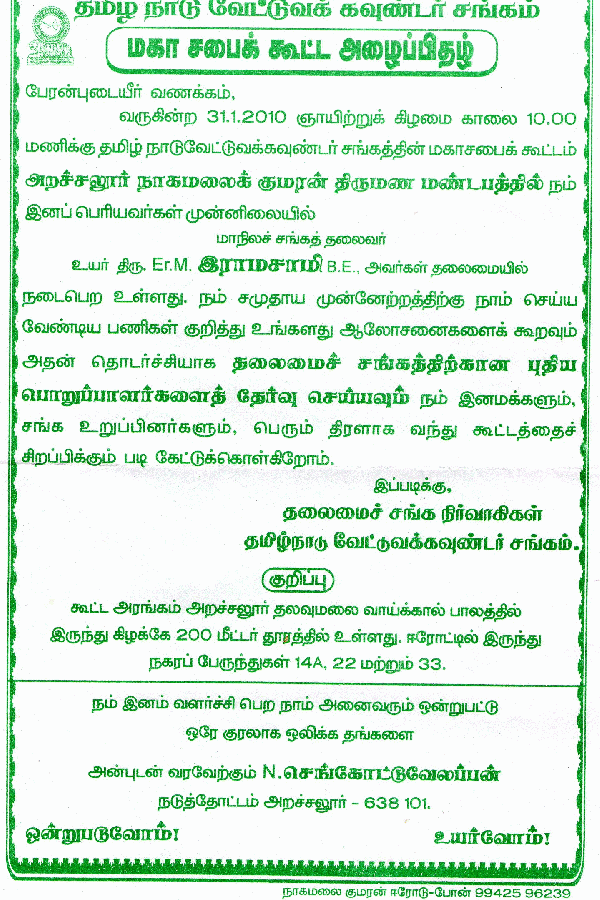 தமிழ் நாடு வேட்டுவக் கவுண்டர் சங்கம்
மகா சபைக் கூட்ட அழைப்பிதழ்
பேரன்புடையீர் வணக்கம்,
வருகின்ற 31.1.2010 ஞாயிற்றுக் கிழமை காலை 10.00
மணிக்கு தமிழ் நாடுவேட்டுவக்கவுண்டர் சங்கத்தின் மகாசபைக் கூட்டம்
அறச்சலூர் நாகமலைக் குமரன் திருமண மண்டபத்தில் நம்
இனப் பெரியவர்கள் முன்னிலையில்
மாநிலச் சங்கத் தலைவர்
உயர் திரு. Er.M. இராமசாமி B.E., அவர்கள் தலைமையில்
நடைபெற உள்ளது. நம் சமுதாய முன்னேற்றத்திற்கு நாம் செய்ய
வேண்டிய பணிகள் குறித்து உங்களது ஆலோசனைகளைக் கூறவும்
அதன் தொடர்ச்சியாக தலைமைச் சங்கத்திற்கான புதிய
பொறுப்பாளர்களைத் தேர்வு செய்யவும் நம் இனமக்களும்,
சங்க உறுப்பினர்களும், பெரும் திரளாக வந்து கூட்டத்தைச்
சிறப்பிக்கும் படி கேட்டுக்கொள்கிறோம்.
இப்படிக்கு,
தலைமைச் சங்க நிர்வாகிகள்
தமிழ்நாடு வேட்டுவக்கவுண்டர் சங்கம்.
குறிப்பு
கூட்ட அரங்கம் அறச்சலூர் தலவுமலை வாய்க்கால் பாலத்தில்
இருந்து கிழக்கே 200 மீட்டர் தூரத்தில் உள்ளது. ஈரோட்டில் இருந்து
நகரப் பேருந்துகள் 14A, 22 மற்றும் 33.
நம் இனம் வளர்ச்சி பெற நாம் அனைவரும் ஒன்றுபட்டு
ஒரே குரலாக ஒலிக்க தங்களை
அன்புடன் வரவேற்கும் N.செங்கோட்டுவேலப்பன்
நடுத்தோட்டம் அறச்சலூர் - 638 101.
ஒன்றுபடுவோம்! உயர்வோம்!
நாகமலை குமரன் ஈரோடு-போன் 99425 96239